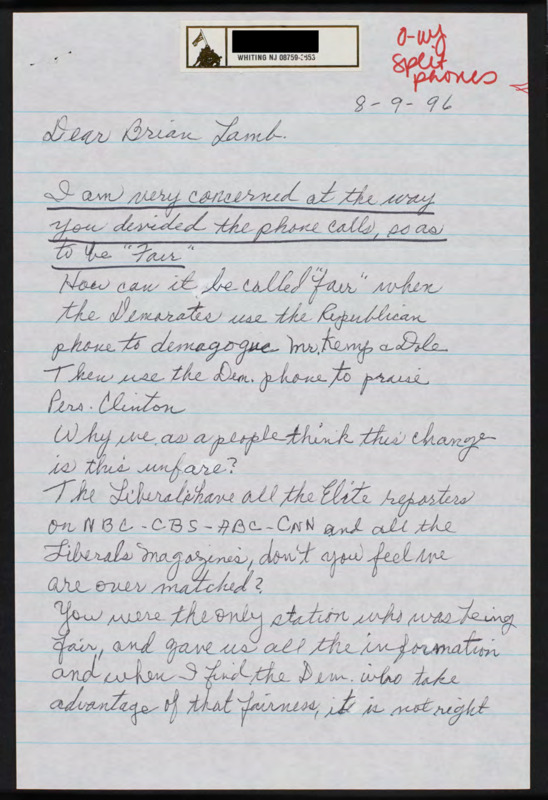 WHITING NJ 08759
split
phones
8-9-96
Dear Brian Lamb.
I am very concerned at the way
you devided the phone calls, so as
to be "Fair"
How can it be called "fair" when
the Demorates use the Republican
phone to demagogue Mr. Kemp & Dole
Then use the Dem. phone to praise
Pers. Clinton
Why we, as a people think this change
is this unfare?
The Liberals have all the Elite reporters
on NBC-CBS-ABC-CNN and all the
Liberals magazines, don't you feel we
are over matched?
You were the only station who was being
fair, and gave us all the information
and when I find the Dem. who take
advantage of that fairness, it is not right